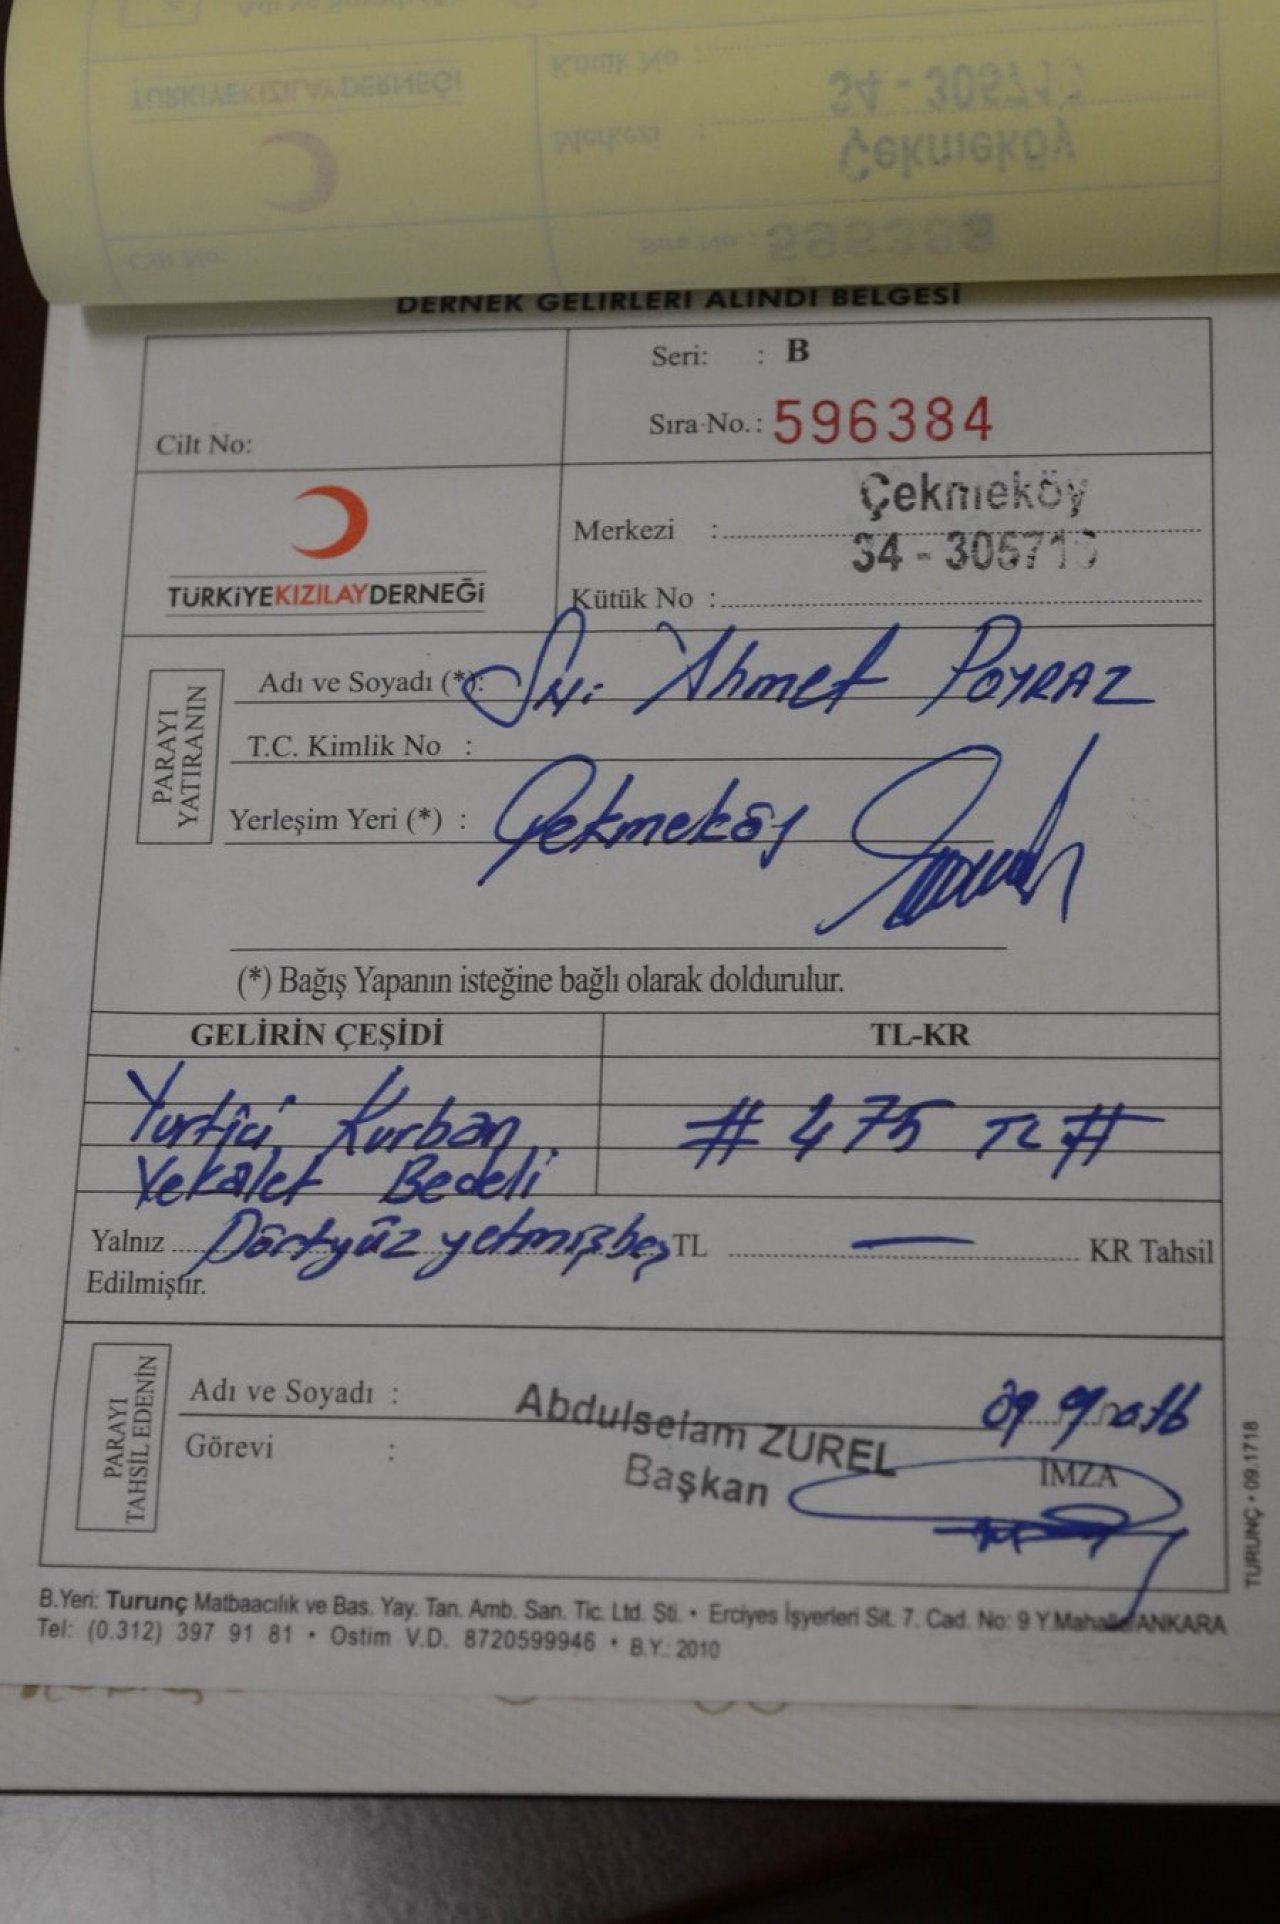 DERNEK GELİRLERİ ALINDI BELGESİ
Seri: : B
Cilt No:
Sıra No.: 596384
TÜRKİYEKIZILAYDERNEĞİ
Çekmeköy
Merkezi :
34 - 305715
Kütük No :
PARAYI YATIRANIN
Adı ve Soyadı (*): Sn. Ahmet POYRAZ
T.C. Kimlik No :
Yerleşim Yeri (*) : Çekmeköy
(*) Bağış Yapanın isteğine bağlı olarak doldurulur.
GELİRİN ÇEŞİDİ TL-KR
Yurtiçi Kurban # 475 TL #
Vekalet Bedeli
Yalnız Dörtyüzyetmişbeş TL — KR Tahsil
Edilmiştir.
PARAYI TAHSİL EDENİN
Adı ve Soyadı : Abdulselam ZUREL 09.09.2016
Görevi : Başkan İMZA
TURUNÇ • 09.1718
B.Yeri: Turunç Matbaacılık ve Bas. Yay. Tan. Amb. San. Tic. Ltd. Şti. • Erciyes İşyerleri Sit. 7. Cad. No: 9 Y.Mahalle/ANKARA
Tel: (0.312) 397 91 81 • Ostim V.D. 8720599946 • B.Y.: 2010